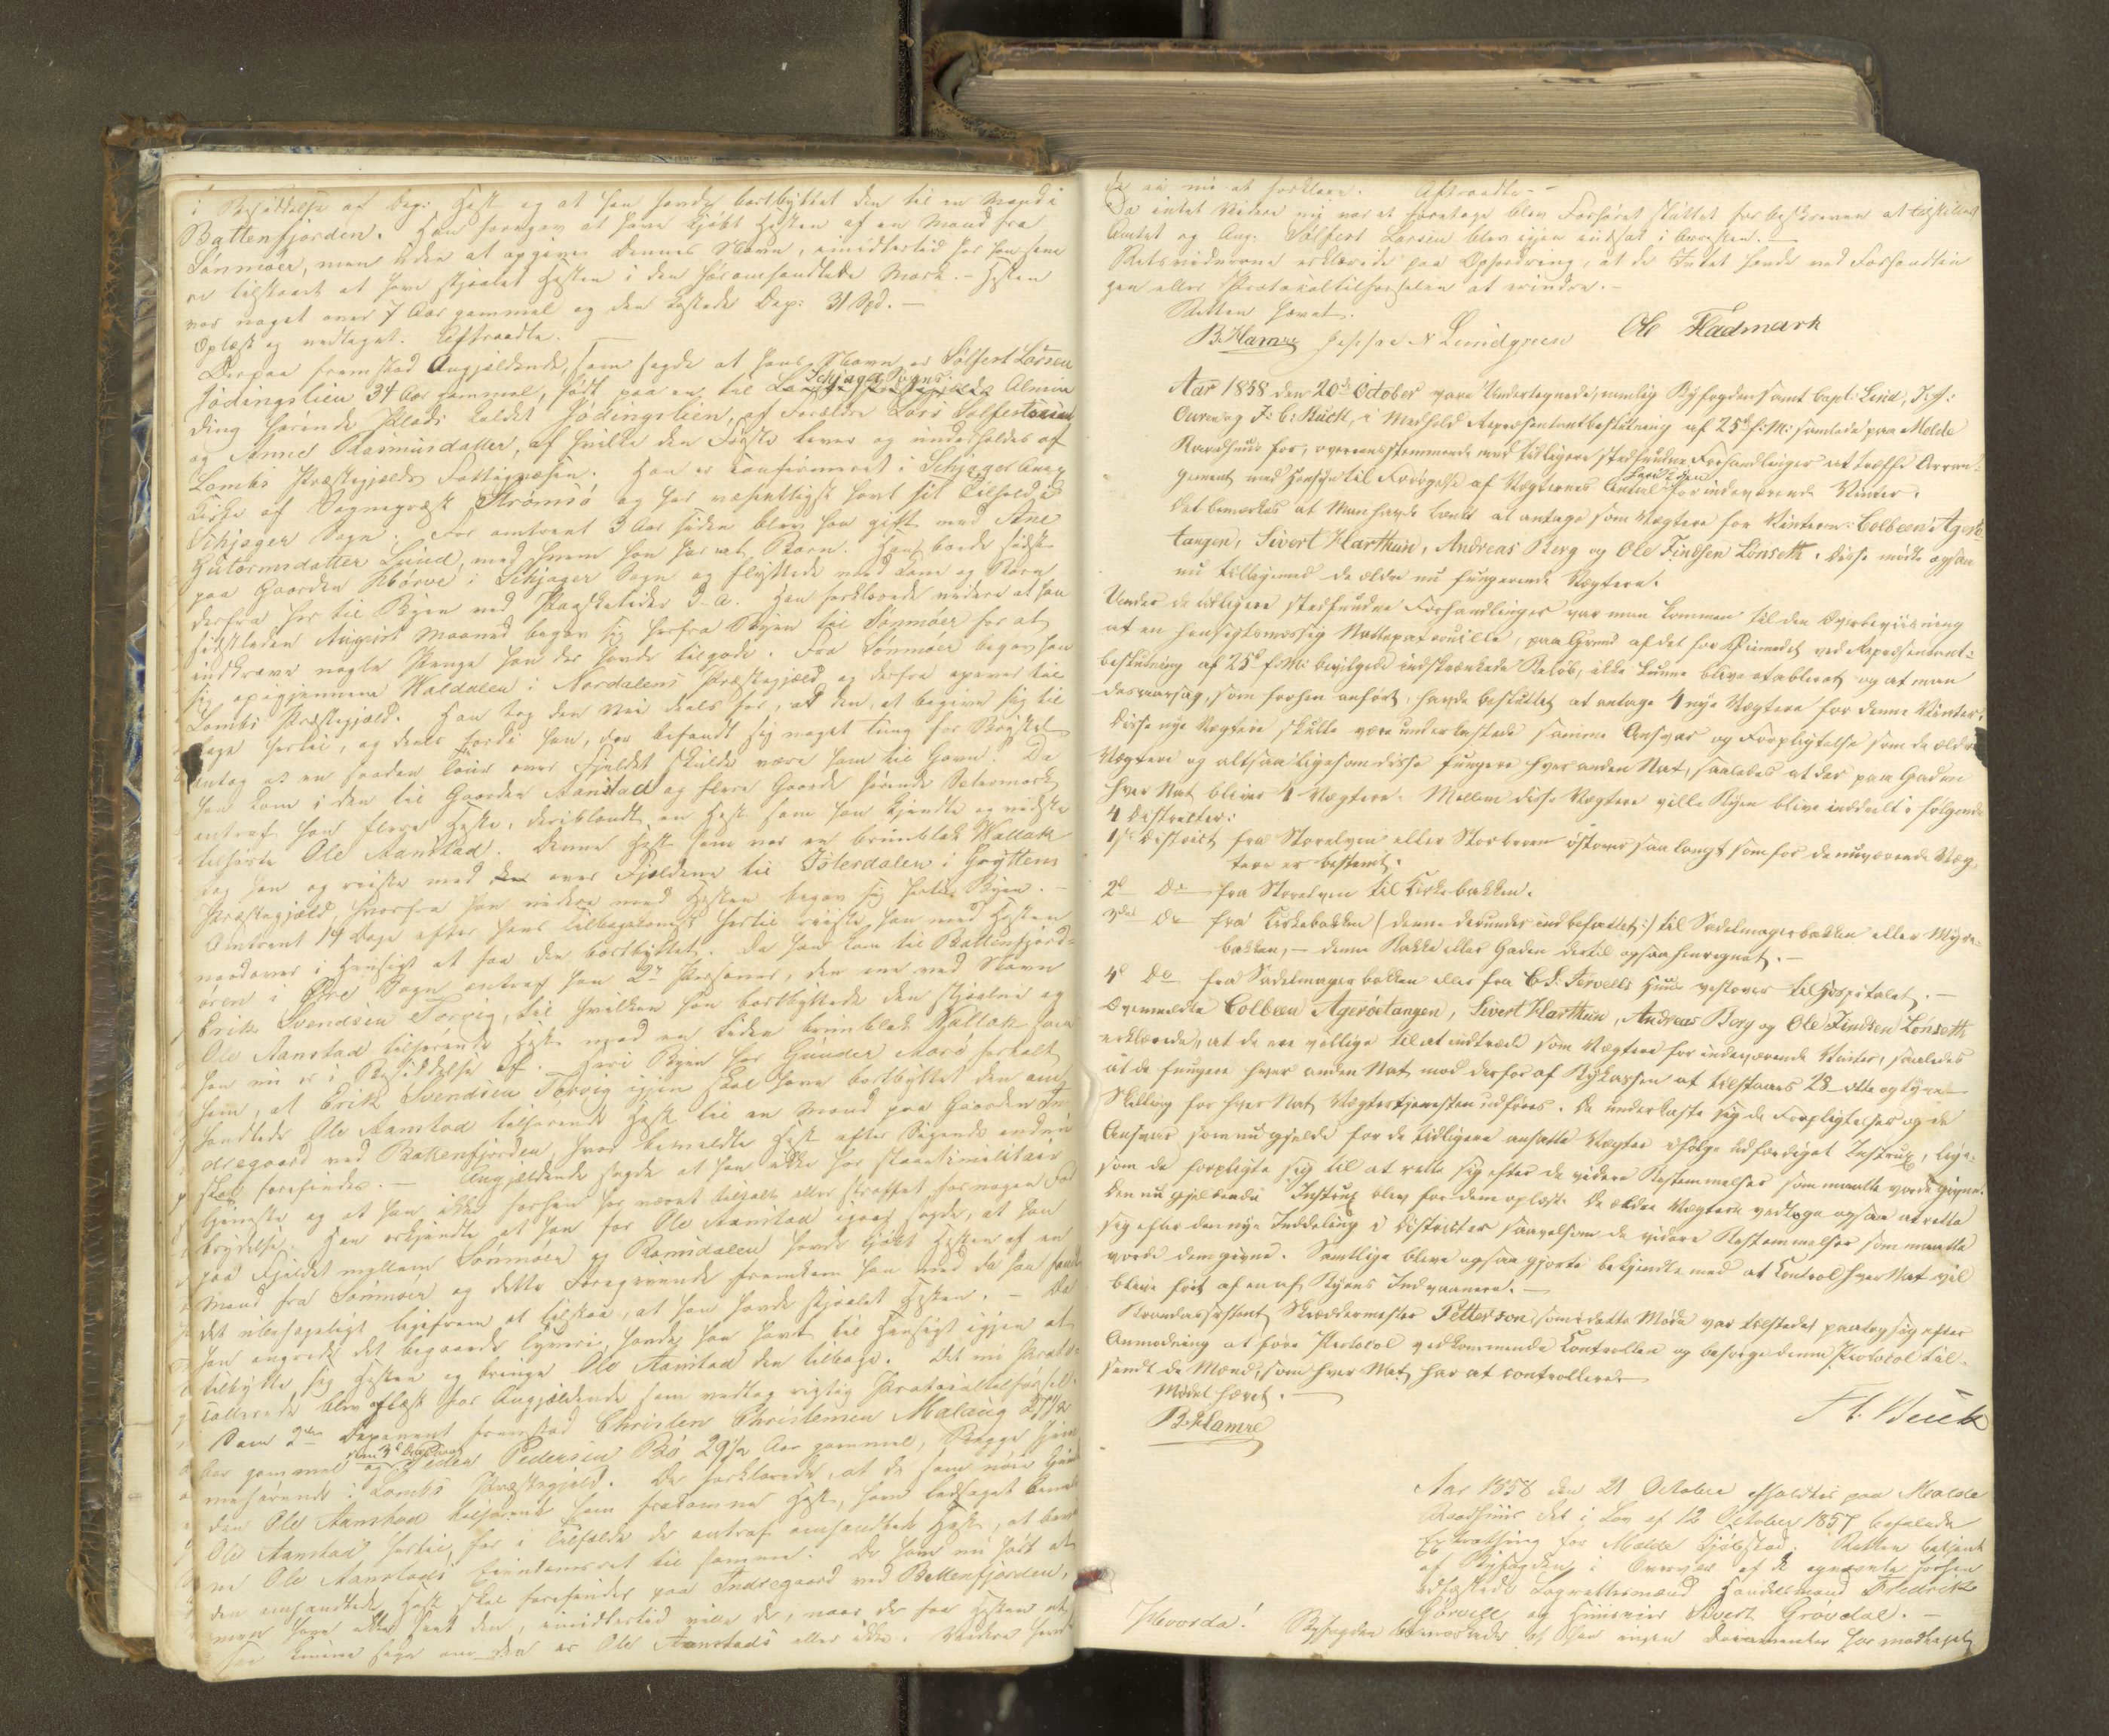 i Besiddelse af Dep: Hest og at han havde bortbyttet den til en Mand i
Battenfjorden. Han foregav at have kjøbt Hesten af en Mand fra
Søndmøer, men uden at opgive dennes Navn, imidlertid har han sene
re tilstaaet at have stjaalet Hesten i den foromhandlede Mark. - Hesten
var noget over 7 Aar gammel og den kostede Dep: 31 Spd. -
Oplæst og vedtaget. Aftraadte.
Derpaa fremstod Angjældende, som sagde at hans Navn er Sølfest Larsen
Jødingslien 34 Aar gammel, født paa en til Schjager Sogns Almin
ding hørende Plads kaldet Jødingslien, af Forældre Lars Solfestsen
og Anne Rasmusdatter, af hvilke den Første lever og underholdes af
Lombs Præstegjælds Fattigvæsen. Han er confirmeret i Schjager Anex
Kirke af Sogneprest Strømsø og har væsentligst havt sit Tilhold i
Schjager Sogn. For omtrent 3 Aar siden blev han gift med Ane
Gutormsdatter Lund, med hvem han har et Barn. Han boede sidst
paa Gaarden Skårve i Schjager Sogn og flyttede med Kone og Barn
derfra her til Byen ved Paasketider d. A. Han forklarede videre at han
sidstleden August Maaned begav sig herfra Byen til Søndmøer for at
indkræve nogle Penge han der havde tilgode. Fra Søndmøer begav han
sig opigjennem Waldalen i Nordalens Præstegjæld og derfra over til
Lombs Præstegjæld. Han tog den Vei deels for, at
tage hertil, og deels fordi han, der befandt sig noget tung for Brystet
antog at en saadan Tour over Fjeldet skulde være ham til Gavn. Da
han kom i den til Gaarden Aanstad og flere Gaarde hørende Sætermark
antraf han flere Heste, deriblandt en Hest som han kjendte og vidste
tilhørte Ole Aanstad. Denne Hest som var en brunblak Wallak
tog han og reiste med den over Fjeldene til Isterdalen i Gryttens
Præstegjæld, hvorfra han videre med Hesten begav sig hertil Byen. -
Omtrent 14 Dage efter hans Tilbagekomst hertil reiste han med Hesten
nordover i Hensigt at faa den bortbyttet. Da han kom til Battenfjord-
øren i Øre Sogn antraf han 2de Personer, den ene ved Navn
Erik Svendsen Torvig, til hvilken han bortbyttede den stjaalne og
Ole Aanstad tilhørende Hest mod en liden brunblak Wallak som
han nu er i Besiddelse af. Heri Byen har Gunder Aarø fortalt
ham, at Erik Svendsen Torvig igjen skal have bortbyttet den om
handlede Ole Aanstad tilhørende Hest til en Mand paa Gaarden In
dregaard ved Battenfjorden, hvor bemeldte Hest efter Sigende endnu
skal forefindes. - Angjældende sagde at han ikke har staaet i militair
tjeneste og at han ikke forhen har været tiltalt eller straffet for nogen For
brydelse. Han erkjendte at han for Ole Aanstad igaar sagde, at han
paa Fjeldet mellem Søndmøer og Romsdalen havde kjøbt Hesten af en
Mand fra Søndmøer og dette Foregivende fremkom han med da han fandt
det ubehageligt ligefrem at tilstaa, at han havde stjaalet Hesten. - Da
han angrede det begaaede Tyveri, havde han havt til Hensigt igjen at
tilbytte sig Hesten og bringe Ole Aanstad den tilbage. Det nu Proto-
collerede blev oplæst for Angjældende som vedtog rigtig Protocoltilførsel.
Som 2den Deponent fremstod Christen Christensen Malaug 27 1/2
Aar gammel og som 3de Deponent Peder Pedersen Bø 29 1/2 Aar gammel, Begge hjem
mehørende i Lombs Præstegjæld. De forklarede, at de som nøie kjende
den Ole Aanstad tilhørende ham frakomne Hest, have ledsaget bemeldte
Ole Aanstad hertil, for i Tilfælde de antraf omhandlede Hest, at bevid
ne Ole Aanstads Eiendomsret til samme. De have nu hørt at
den omhandlede Hest skal forefindes paa Indregaard ved Battenfjorden,
men have ikke seet den, imidlertid ville de, naar de faa Hesten at
see kunne sige om den er Ole Aanstads eller ikke. Videre havde
de ei nu at forklare. Aftraadte. -
Da intet Videre nu var at foretage blev Forhøret sluttet for beskreven at tilstilles
Amtet og Ang. Solfest Larsen blev igjen indsat i Arresten. -
Retsvidnerne erklærede paa Opfordring, at de Intet havde ved Forhandlin
gen eller Protocoltilførselen at erindre. -
Retten hævet.
B. Hamre N Lundgreen Ole Fladmark
Aar 1858 den 20de October vare Undertegnede, nemlig Byfogden samt Capt: Lind, 
 og F: C: Buck, i Medhold Repræsentantbeslutning af 25de f: M: samlede paa Molde
Raadhuus for, overeensstemmende med tidligere stedfundne Forhandlinger at træffe Arran-
gement med Hensyn til Forøgelse af Vægternes Antal her i Byen for indeværende Vinter.
Det bemærkes at Man havde tænkt at antage som Vægtere for Vinteren: Colbeen Agerø-
tangen, Sivert Harthun, Andreas Berg og Ole Findsen Lønseth. Disse mødte ogsaa
nu tilligemed de ældre nu fungerende Vægtere.
Under de tidligere stedfundne Forhandlinger var man kommen til den Overbeviisning
at en hensigtsmæssig Nattepatrouille, paa Grund af det for Øiemedet ved Repræsentant-
beslutning af 25de f: M: bevilgede indskrænkede Beløb, ikke kunne blive etableret og at man
desaarsag, som forhen anført, havde besluttet at antage 4 nye Vægtere for denne Vinter.
Disse nye Vægtere skulle være underkastede samme Ansvar og Forpligtelse som de ældre
Vægtere og altsaa ligesom disse fungere hver anden Nat, saaledes at der paa Gaden
hver Nat bliver 4 Vægtere. Mellem disse Vægtere ville Byen blive inddeelt i følgende
4 Districter:
1ste District fra Storelven eller Storbroen østover saa langt som for de nuværende Væg-
tere er bestemt.
2d Do fra Storelven til Kirkebakken.
3die Do fra Kirkebakken (denne derunder indbefattet:) til Sadelmagerbakken eller Myre-
bakken, - denne Bakke eller Gaden dertil ogsaa henregnet. -
4d Do fra Sadelmagerbakken eller fra C. L. Tervells Huus vestover til Hospitalet. -
Ovenmeldte Colbeen Agerøetangen, Sivert Harthun, Andreas Berg og Ole Findsen Lønseth
erklærede, at de ere villige til at indtræde som Vægtere for indeværende Vinter, saaledes
at de fungere hver anden Nat mod derfor af Bykassen at tilstaaes 28 - otte og tyve -
Skilling for hver Nat Vægtertjenesten udføres. De underkaste sig de Forpligtelser og de
Ansvar som nu gjelde for de tidligere ansatte Vægter ifølge udfærdiget Instrux, lige-
som de forpligte sig til at rette sig efter de videre Bestemmelser som maatte vorde givne.
Den nu gjældende Instrux blev for dem oplæst. De ældre Vægtere vedtoge ogsaa at rette
sig efter den nye Inddeling i Districter saavelsom de videre Bestemmelser som maatte
vorde dem givne. Samtlige bleve ogsaa gjorte bekjendte med at Control hver Nat vil
blive ført af en af Byens Indvaanere. -
Brandassistent Skræddermester Petterson, som i dette Møde var tilstede, paatog sig efter
Anmodning at føre Protocol vedkommende Controllen og besørge denne Protocol til-
sendt de Mænd, som hver Nat har at controllere.
Mødet hævet. -
B. Hamre F. C. Buck
Aar 1858 den 21 October holdtes paa Molde
Raadhuus det i Lov af 12 October 1857 befalede
Extrathing for Molde Kjøbstad. Retten betjent
af Byfogden i Overvær af de opnævnte forhen
edfæstede Lagrettesmænd Handelsmand Fredrik
Gørvell og Huuseier Sivert Grøvdal. -
Hvorda! Byfogden bemærkede at han ingen Documenter har modtaget